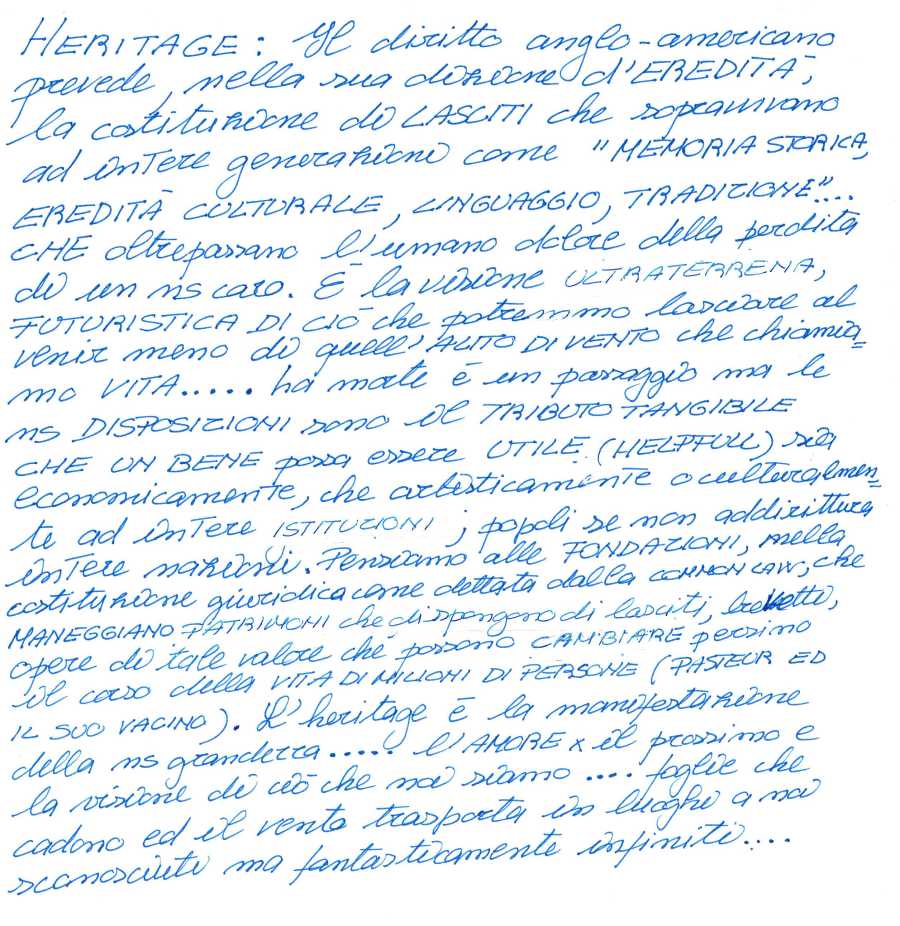 HERITAGE: Il diritto anglo-americano
prevede, nella sua dizione d'EREDITÀ,
la costituzione di LASCITI che sopravvivano
ad intere generazioni come "MEMORIA STORICA,
EREDITÀ CULTURALE, LINGUAGGIO, TRADIZIONE"....
CHE oltrepassano l'umano dolore della perdita
di un ns caro. È la visione ULTRATERRENA,
FUTURISTICA DI CIÒ che potremmo lasciare al
venir meno di quell'ALITO DI VENTO che chiamia=
mo VITA..... La morte è un passaggio ma le
ns DISPOSIZIONI sono il TRIBUTO TANGIBILE
CHE UN BENE possa essere UTILE (HELPFULL) sia
economicamente, che artisticamente o culturalmen=
te ad intere ISTITUZIONI; popoli se non addirittura
intere nazioni. Pensiamo alle FONDAZIONI, nella
costituzione giuridica come dettata dalla COMMON LAW, che
MANEGGIANO PATRIMONI che dispongono di lasciti, brevetti,
opere di tale valore che possono CAMBIARE persino
il corso della VITA DI MILIONI DI PERSONE (PASTEUR ED
IL SUO VACINO). L'heritage è la manifestazione
della ns grandezza..... l'AMORE x il prossimo e
la visione di ciò che noi siamo .... foglie che
cadono ed il vento trasporta in luoghi a noi
sconosciuti ma fantasticamente infiniti....